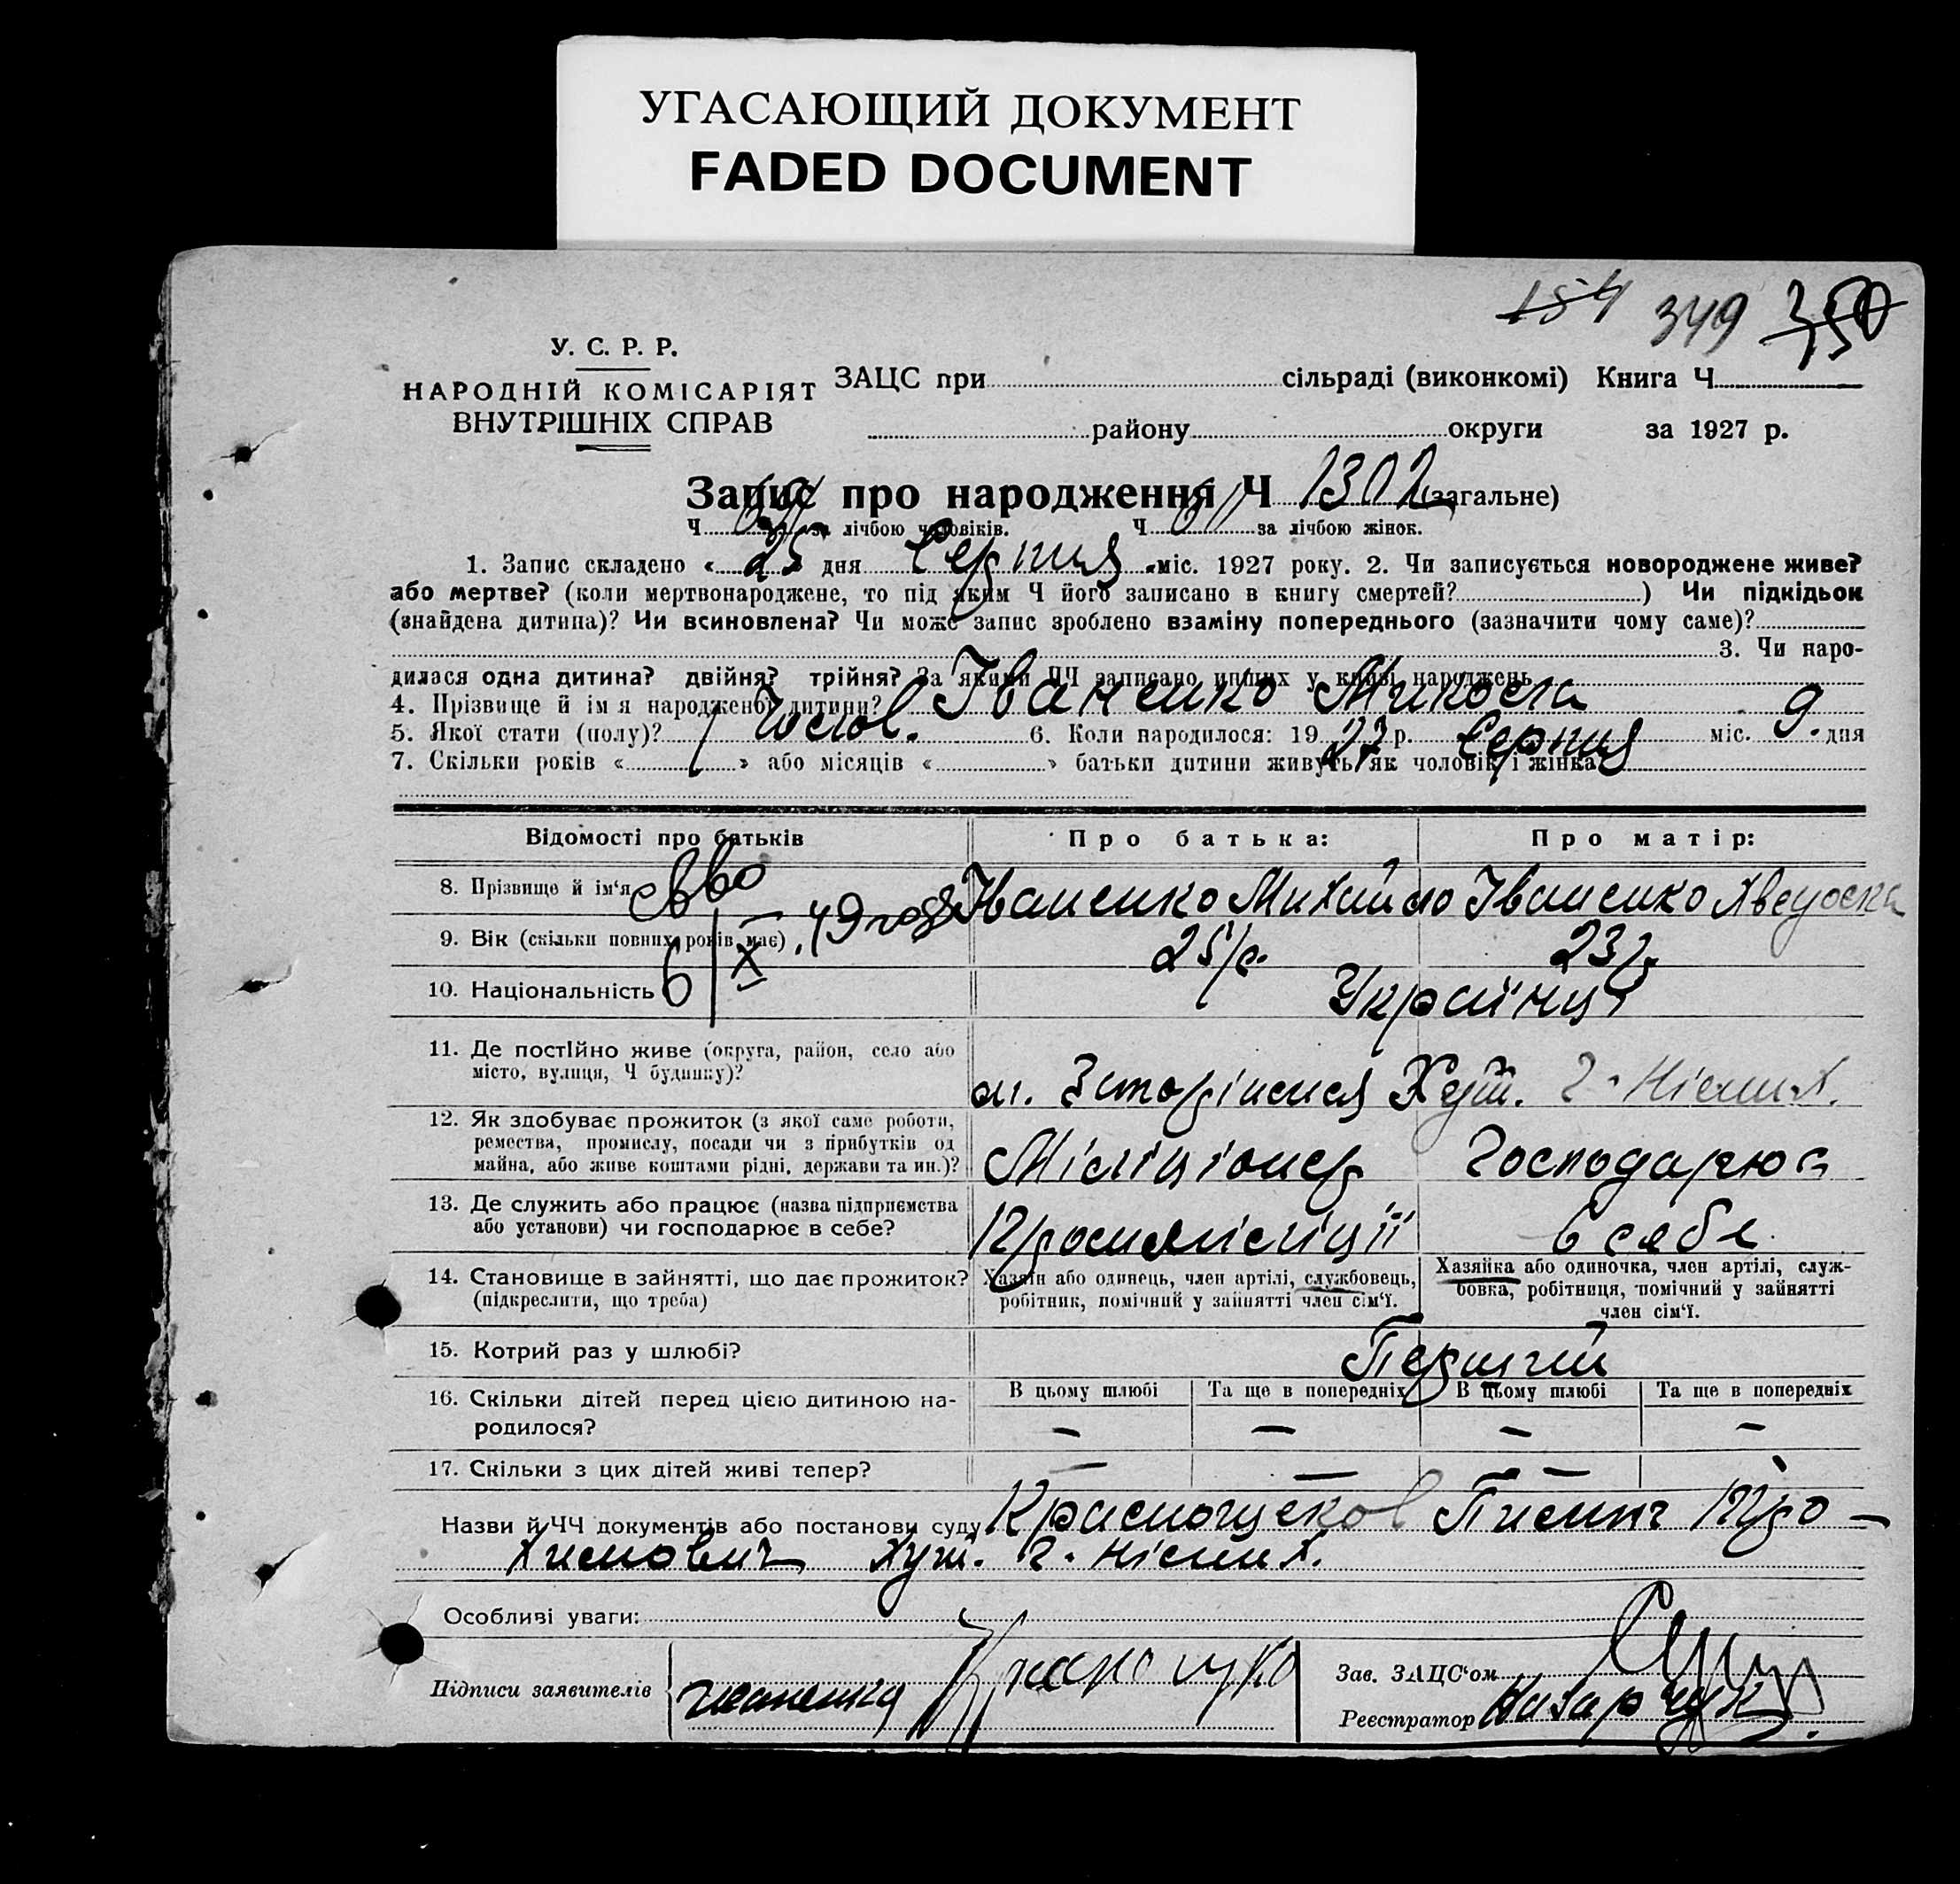 УГАСАЮЩИЙ ДОКУМЕНТ
FADED DOCUMENT
154 349 350
У. С. Р. Р.
НАРОДНІЙ КОМІСАРІЯТ
ВНУТРІШНІХ СПРАВ
ЗАЦС при сільраді (виконкомі) Книга Ч
району округи за 1927 р.
Запис про народження Ч 1302 (загальне)
Ч за лічбою чоловіків. Ч 611 за лічбою жінок.
1. Запис складено « 25 » дня Серпня міс. 1927 року. 2. Чи записується новороджене живе?
або мертве? (коли мертвонароджене, то під яким Ч його записано в книгу смертей? ) Чи підкідьок
(знайдена дитина)? Чи всиновлена? Чи може запис зроблено взаміну попереднього (зазначити чому саме)?
3. Чи наро-
дилася одна дитина? двійня? трійня? За якими ЧЧ записано инших у книзі народжень
4. Прізвище й імя народженої дитини? Іваненко Микола
5. Якої стати (полу)? Чолов. 6. Коли народилося: 19 27 р. Серпня міс. 9. дня
7. Скільки років « » або місяців « » батьки дитини живуть як чоловік і жінка
Відомості про батьків Про батька: Про матір:
8. Прізвище й ім'я Іваненко Михайло Іваненко
9. Вік (скільки повних років має) 25 р. 23 р.
6/X 49
10. Національність Українці
11. Де постійно живе (округа, район, село або
місто, вулиця, Ч будинку)? Хут.
12. Як здобуває прожиток (з якої саме роботи,
ремества, промислу, посади чи з прибутків од
майна, або живе коштами рідні, держави та ин.)? Міліціонер Господарює
13. Де служить або працює (назва підприємства
або установи) чи господарює в себе? в себе
14. Становище в зайнятті, що дає прожиток?
(підкреслити, що треба)
Хазяїн або одинець, член артілі, службовець,
робітник, помічний у зайнятті член сім'ї.
Хазяйка або одиночка, член артілі, служ-
бовка, робітниця, помічний у зайнятті
член сім'ї.
15. Котрий раз у шлюбі? Перший
16. Скільки дітей перед цією дитиною на-
родилося?
В цьому шлюбі Та ще в попередніх В цьому шлюбі Та ще в попередніх
— — — —
17. Скільки з цих дітей живі тепер? — — —
Назви й ЧЧ документів або постанови суду Краснощеков Тро-
химович Хут.
Особливі уваги:
Підписи заявителів
Зав. ЗАЦС'ом
Реєстратор Назарчук